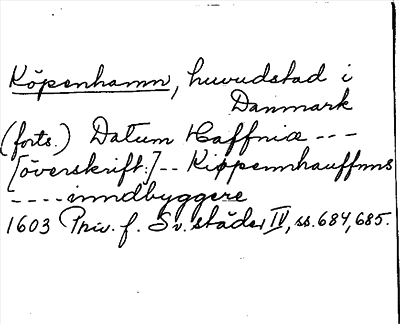 Köpenhamn, huvudstad i
Danmark
(forts.) Datum Haffniæ ---
[överskrift:] -- Kiøppennhauffnns
---- inndbyggere
1603 Priv. f. Sv. städer IV, ss. 684, 685.